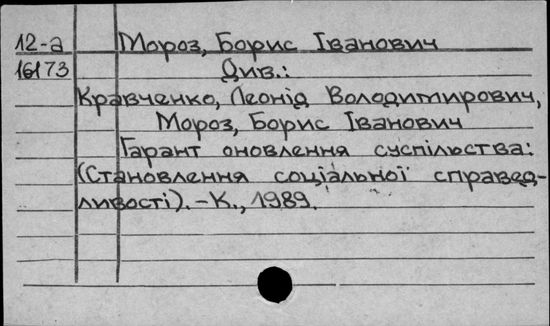 12-а Мороз, Борис Іванович
16173 Див.:
Кравченко, Леонід Володимирович,
Мороз, Борис Іванович
Гарант оновлення суспільства:
(Становлення соціальної справед-
ливості). – К., 1989.